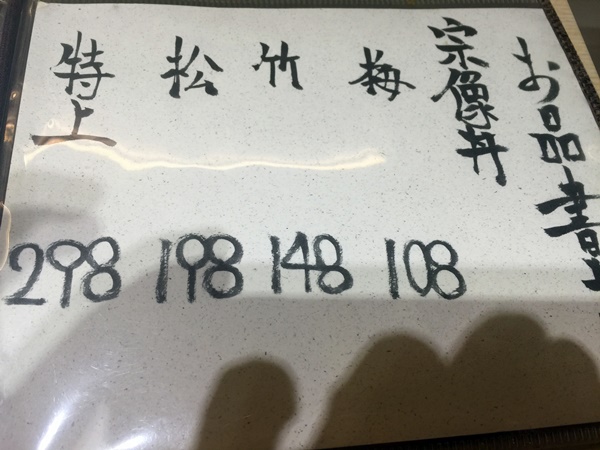 お品書
宗像丼
梅 108
竹 148
松 198
特上 298